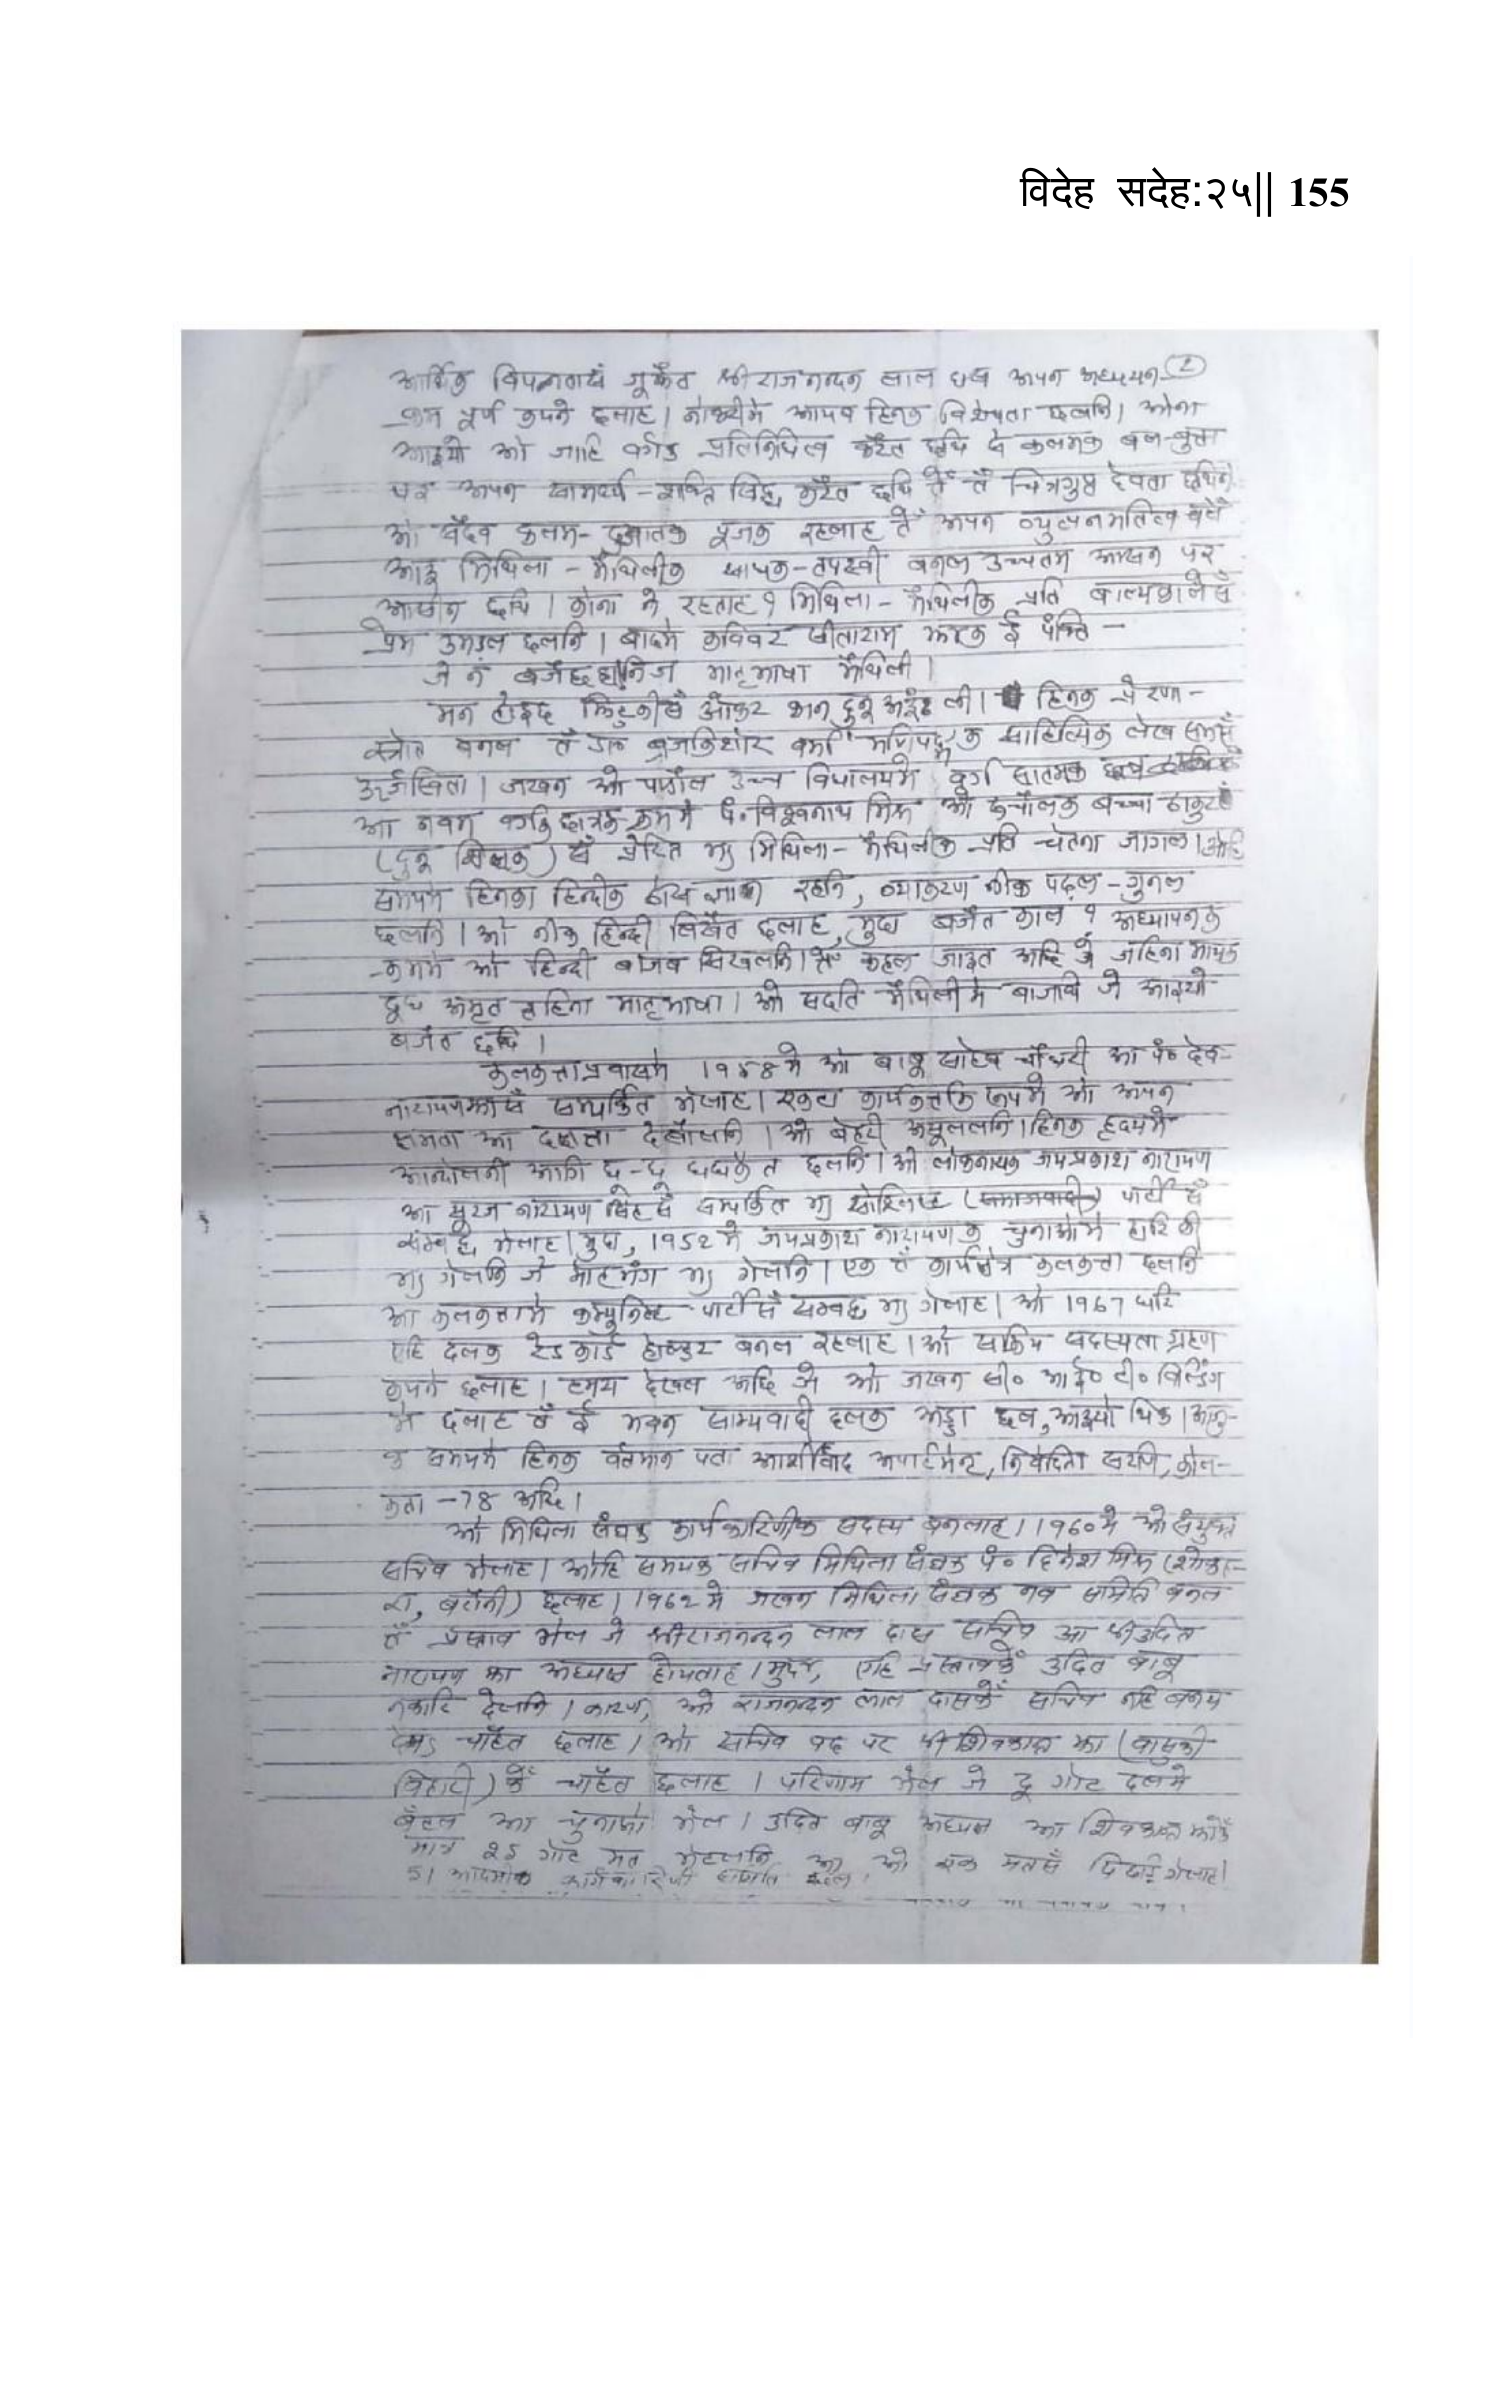 विदेह सदेह:२५|| 155
(2)
आर्थिक विपन्नतासँ जूझैत श्री राजनन्दन लाल दास अपन अध्ययन
-क्रम पूर्ण कएने छलाह। हिनक विशेषता छलनि। ओना
आइयो ओ जाहि वर्गक प्रतिनिधित्व करैत छथि से कलमक बल-बुत्ता
पर अपन सामर्थ्य-शक्ति सिद्ध करैत छथि तेँ तँ चित्रगुप्त देवता छथिन
ओ सदैव कलम-दुआतक पूजक रहलाह तेँ अपन व्युत्पन्नमतित्व बलेँ
आइ मिथिला-मैथिलीक साधक-तपस्वी बनल उच्चतम आसन पर
आसीन छथि। कोना ने रहताह? मिथिला-मैथिलीक प्रति बाल्यकालेसँ
प्रेम उमड़ल छलनि। बादमे कविवर सीताराम झाक ई पंक्ति -
जे नँ बजैछ निज मातृभाषा मैथिली।
मन होइछ झिटुकीसँ ओकर कान दुनू अइंठ ली। हिनक प्रेरणा-
स्रोत बनल तँ डा० ब्रजकिशोर वर्मा मणिपद्मक साहित्यिक लेख सभसँ
ऊर्जस्विता। जखन ओ पण्डौल उच्च विद्यालयमे वर्ग सातमक
आ नवम वर्गक छात्रक क्रममे पं. विश्वनाथ मिश्र ओ बच्चा ठाकुर
(दुनू शिक्षक) सँ प्रेरित भऽ मिथिला-मैथिलीक प्रति चेतना जागल। ओहि
समयमे हिनका हिन्दीक ठोस ज्ञान रहनि, व्याकरण नीक पढ़ल-गुनल
छलनि। ओ नीक हिन्दी लिखैत छलाह, मुदा बजैत काल? अध्यापनक
-क्रममे ओ हिन्दी बाजब सिखलनि। कहल जाइत अछि जे जहिना मायक
दूध अमृत तहिना मातृभाषा। ओ सदति मैथिलीमे बाजथि जे आइयो
बजैत छथि।
कलकत्ता प्रवासमे १९५४मे ओ बाबू साहेब चौधरी आ पं० देव-
नारायण झासँ सम्पर्कित भेलाह। एकटा कार्यकर्त्ताक रूपमे ओ अपन
क्षमता आ दक्षता देखौलनि। ओ बेहदी हिनक हृदयमे
आन्दोलनी आगि धू-धू धधकैत छलनि। ओ लोकनायक जयप्रकाश नारायण
आ सूरज नारायण सिंहसँ सम्पर्कित भऽ सोशलिस्ट (समाजवादी) पार्टीसँ
सम्बद्ध भेलाह। मुदा, १९५२मे जयप्रकाश नारायणक चुनाओमे हारि की
भऽ गेलनि जे मोहभंग भऽ गेलनि। एक तँ कार्यक्षेत्र कलकत्ता छलनि
आ कलकत्तामे कम्युनिस्ट पार्टीसँ सम्बद्ध भऽ गेलाह। ओ १९६७ धरि
एहि दलक रेड कार्ड होल्डर बनल रहलाह। ओ सक्रिय सदस्यता ग्रहण
कएने छलाह। हमरा देखल अछि जे ओ जखन सी० आई० टी० बिल्डिंग
मे छलाह तँ ई भवन साम्यवादी दलक अड्डा छल, आइयो थिक। आजु-
क समयमे हिनक वर्तमान पता आशीर्वाद अपार्टमेन्ट, निवेदिता सरणि, कोल-
कता -78 अछि।
ओ मिथिला संघक कार्यकारिणीक सदस्य बनलाह। १९६०मे ओ संयुक्त
सचिव भेलाह। ओहि समयक सचिव मिथिला संघक पं० दिनेश मिश्र
बरौनी) छलाह। १९६२मे जखन मिथिला संघक नव समिति बनल
तँ प्रस्ताव भेल जे श्री राजनन्दन लाल दास सचिव आ श्री उदित
नारायण झा अध्यक्ष होयताह। मुदा, एहि प्रस्तावकेँ उदित बाबू
नकारि देलनि। कारण, ओ राजनन्दन लाल दासकेँ सचिव नहि बनय
देमऽ चाहैत छलाह। ओ सचिव पद पर श्री शिवकान्त झा (वासुकी
बिहारी) केँ चाहैत छलाह। परिणाम भेल जे दू गोट दलमे
बँटल आ चुनाओ भेल। उदित बाबू अध्यक्ष आ शिवकान्त झाकेँ
मात्र २५ गोट मत भेटलनि आ ओ एक मतसँ पिछड़ि गेलाह।
51 कार्यकारिणी समिति